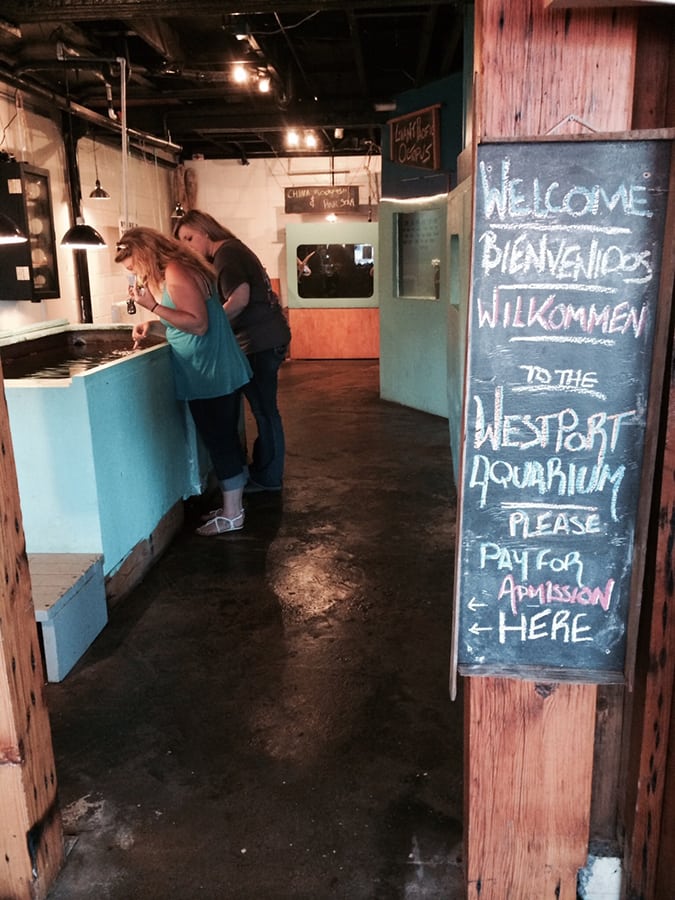 GIANT PACIFIC
OCTOPUS
CHINA ROCKFISH
&
WELCOME
BIENVENIDOS
WILKOMMEN
TO THE
WESTPORT
AQUARIUM
PLEASE
PAY FOR
← ADMISSION
← HERE